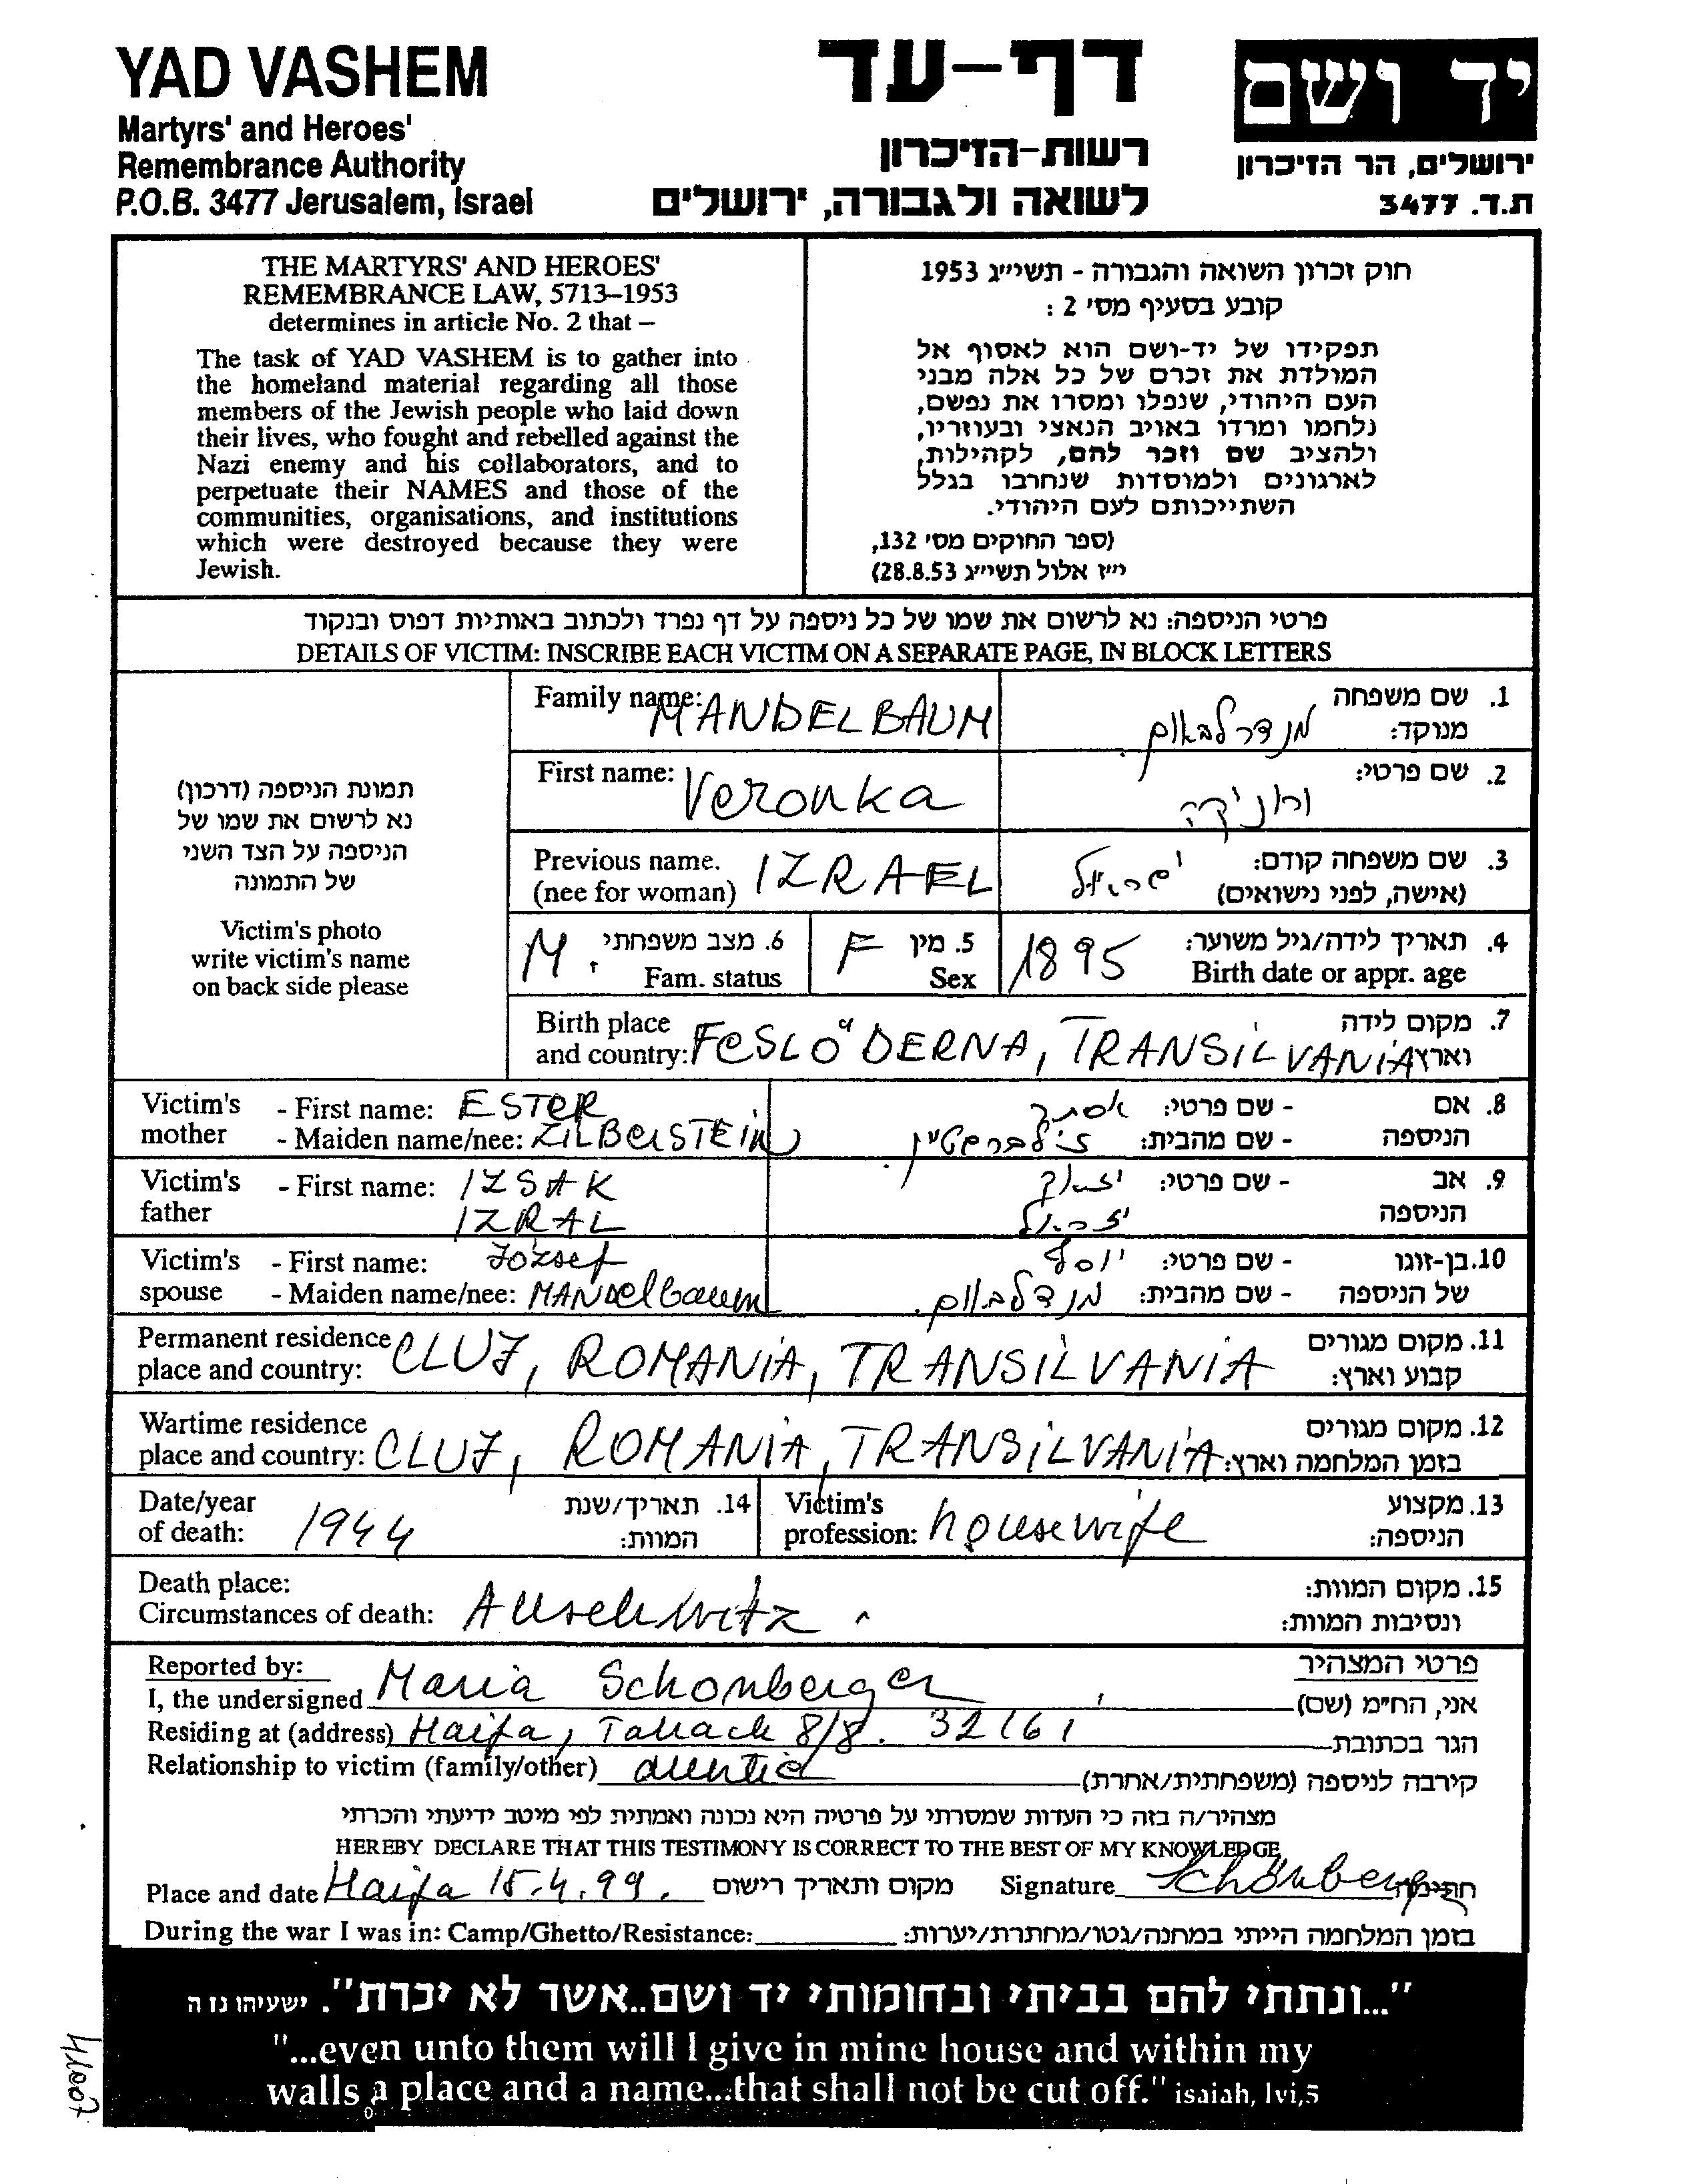 YAD VASHEM
Martyrs' and Heroes'
Remembrance Authority
P.O.B. 3477 Jerusalem, Israel
דף-עד
רשות-הזיכרון
לשואה ולגבורה, ירושלים
יד ושם
ירושלים, הר הזיכרון
ת.ד. 3477
THE MARTYRS' AND HEROES'
REMEMBRANCE LAW, 5713–1953
determines in article No. 2 that –
The task of YAD VASHEM is to gather into
the homeland material regarding all those
members of the Jewish people who laid down
their lives, who fought and rebelled against the
Nazi enemy and his collaborators, and to
perpetuate their NAMES and those of the
communities, organisations, and institutions
which were destroyed because they were
Jewish.
חוק זכרון השואה והגבורה - תשי״ג 1953
קובע בסעיף מס' 2 :
תפקידו של יד-ושם הוא לאסוף אל
המולדת את זכרם של כל אלה מבני
העם היהודי, שנפלו ומסרו את נפשם,
נלחמו ומרדו באויב הנאצי ובעוזריו,
ולהציב שם וזכר להם, לקהילות,
לארגונים ולמוסדות שנחרבו בגלל
השתייכותם לעם היהודי.
(ספר החוקים מס' 132,
י״ז אלול תשי״ג 28.8.53)
פרטי הניספה: נא לרשום את שמו של כל ניספה על דף נפרד ולכתוב באותיות דפוס ובנקוד
DETAILS OF VICTIM: INSCRIBE EACH VICTIM ON A SEPARATE PAGE, IN BLOCK LETTERS
תמונת הניספה (דרכון)
נא לרשום את שמו של
הניספה על הצד השני
של התמונה
Victim's photo
write victim's name
on back side please
Family name: MANDELBAUM
1. שם משפחה
מנוקד: מנדלבאום.
First name: Veronka
2. שם פרטי:
Previous name. IZRAEL
(nee for woman)
3. שם משפחה קודם: ישראל
(אישה, לפני נישואים)
M. 6. מצב משפחתי
Fam. status
F 5. מין
Sex
1895 4. תאריך לידה/גיל משוער:
Birth date or appr. age
Birth place
and country: FeSLŐ DERNA, TRANSILVANIA
7. מקום לידה
וארץ
Victim's mother - First name: ESTER
- Maiden name/nee: ZILBERSTEIN
8. אם הניספה - שם פרטי: אסתר
- שם מהבית: זילברשטיין.
Victim's father - First name: IZSAK
IZRAL
9. אב הניספה - שם פרטי: יצחק
Victim's spouse - First name: József
- Maiden name/nee: MANDelbaum
10. בן-זוגו של הניספה - שם פרטי: יוסף
- שם מהבית: מנדלבאום.
Permanent residence
place and country: CLUJ, ROMANIA, TRANSILVANIA
11. מקום מגורים
קבוע וארץ:
Wartime residence
place and country: CLUJ, ROMANIA, TRANSILVANIA
12. מקום מגורים
בזמן המלחמה וארץ:
Date/year
of death: 1944
14. תאריך/שנת
המוות:
Victim's
profession: housewife
13. מקצוע
הניספה:
Death place:
Circumstances of death: Auschwitz.
15. מקום המוות:
ונסיבות המוות:
Reported by:
פרטי המצהיר
I, the undersigned Maria Schonberger אני, החי״מ (שם)
Residing at (address) Haifa, 8/8. 32161 הגר בכתובת
Relationship to victim (family/other) קירבה לניספה (משפחתית/אחרת)
מצהיר/ה בזה כי העדות שמסרתי על פרטיה היא נכונה ואמתית לפי מיטב ידיעתי והכרתי
HEREBY DECLARE THAT THIS TESTIMONY IS CORRECT TO THE BEST OF MY KNOWLEDGE
Place and date Haifa 15.4.99. מקום ותאריך רישום Signature Schönberger חתימה
During the war I was in: Camp/Ghetto/Resistance: בזמן המלחמה הייתי במחנה/גטו/מחתרת/יערות:
"...ונתתי להם בביתי ובחומותי יד ושם..אשר לא יכרת". ישעיהו נו ה
"...even unto them will I give in mine house and within my
walls a place and a name...that shall not be cut off." isaiah, lvi,5